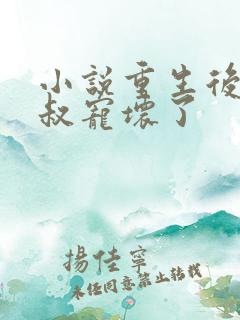 小說重生後
叔寵壞了
揚佳寧
未經同意禁止轉載